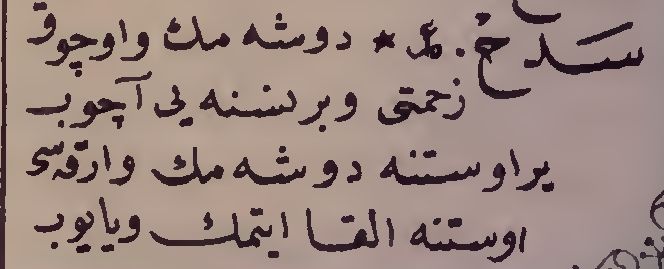 سَدْحْ . عر * دوشه مك واوچوق
زحمتى وبر نسنه يى آچوب
ير اوستنه دوشه مك وارقه سى
اوستنه القا ايتمك ويايوب